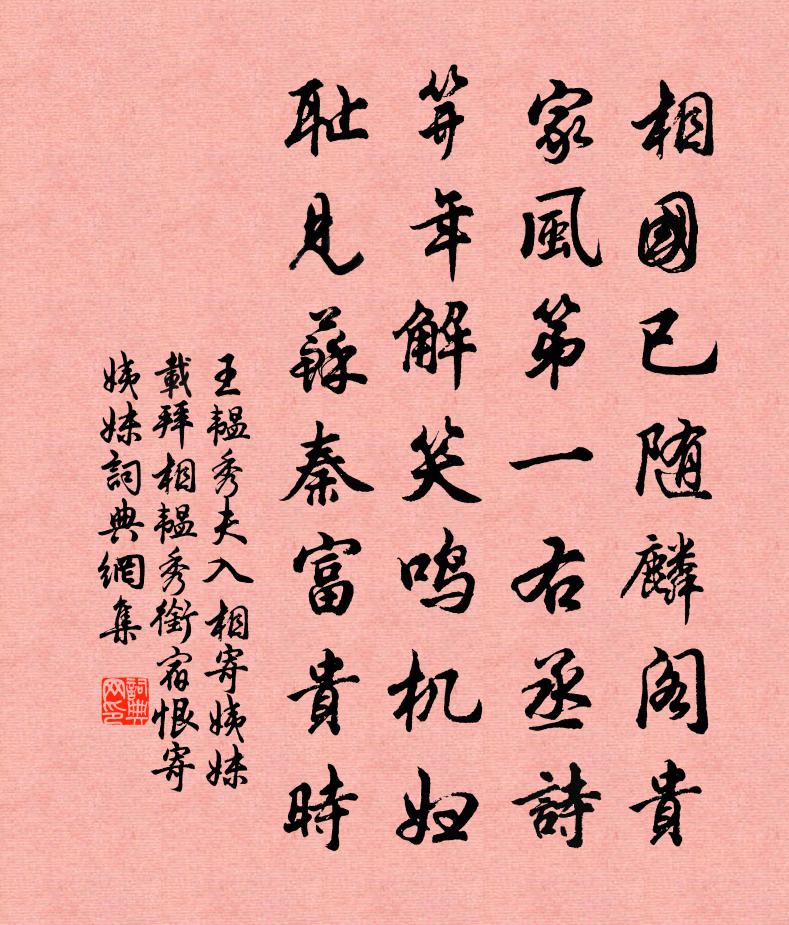 相國已随麟阁貴
家風第一右丞詩
笄年解笑鸣机妇
耻見蘇秦富貴時
王韞秀夫入相寄姨妹
載拜相韞秀銜宿恨寄
姨妹詞典網集
詞典网印